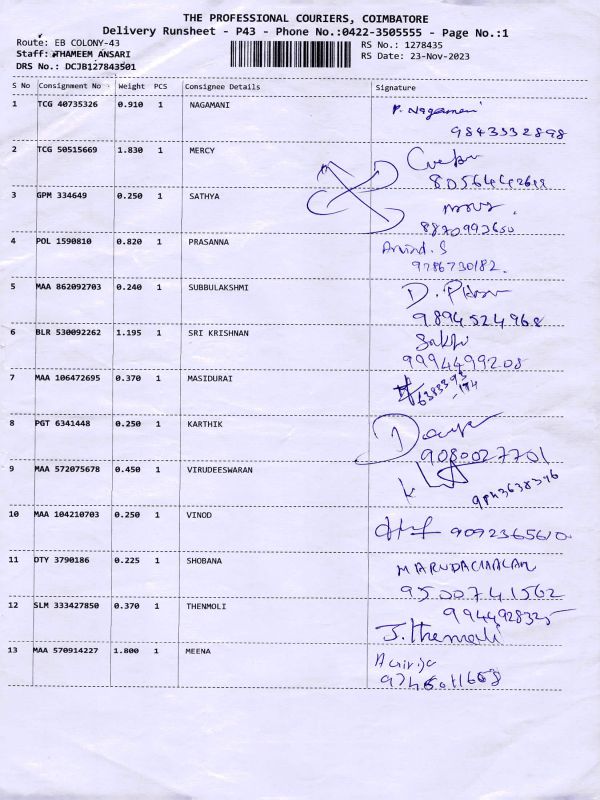 THE PROFESSIONAL COURIERS, COIMBATORE
Delivery Runsheet - P43 - Phone No.:0422-3505555 - Page No.:1
Route: EB COLONY-43
RS No.: 1278435
Staff: THAMEEM ANSARI
RS Date: 23-Nov-2023
DRS No.: DCJB127843501
S No Consignment No Weight PCS Consignee Details Signature
1 TCG 40735326 0.910 1 NAGAMANI P. Nagamani
9843332898
2 TCG 50515669 1.830 1 MERCY
3 GPM 334649 0.250 1 SATHYA
8870993650
4 POL 1590810 0.820 1 PRASANNA Arvind. S
9786730182.
5 MAA 862092703 0.240 1 SUBBULAKSHMI
9894524968
6 BLR 530092262 1.195 1 SRI KRISHNAN
9994499208
7 MAA 106472695 0.370 1 MASIDURAI
8 PGT 6341448 0.250 1 KARTHIK
9080027701
9 MAA 572075678 0.450 1 VIRUDEESWARAN
10 MAA 104210703 0.250 1 VINOD 9092365610
11 DTY 3790186 0.225 1 SHOBANA MARUDACHALAM
9500741562
12 SLM 333427850 0.370 1 THENMOLI 9944928325
J. Themoli
13 MAA 570914227 1.800 1 MEENA